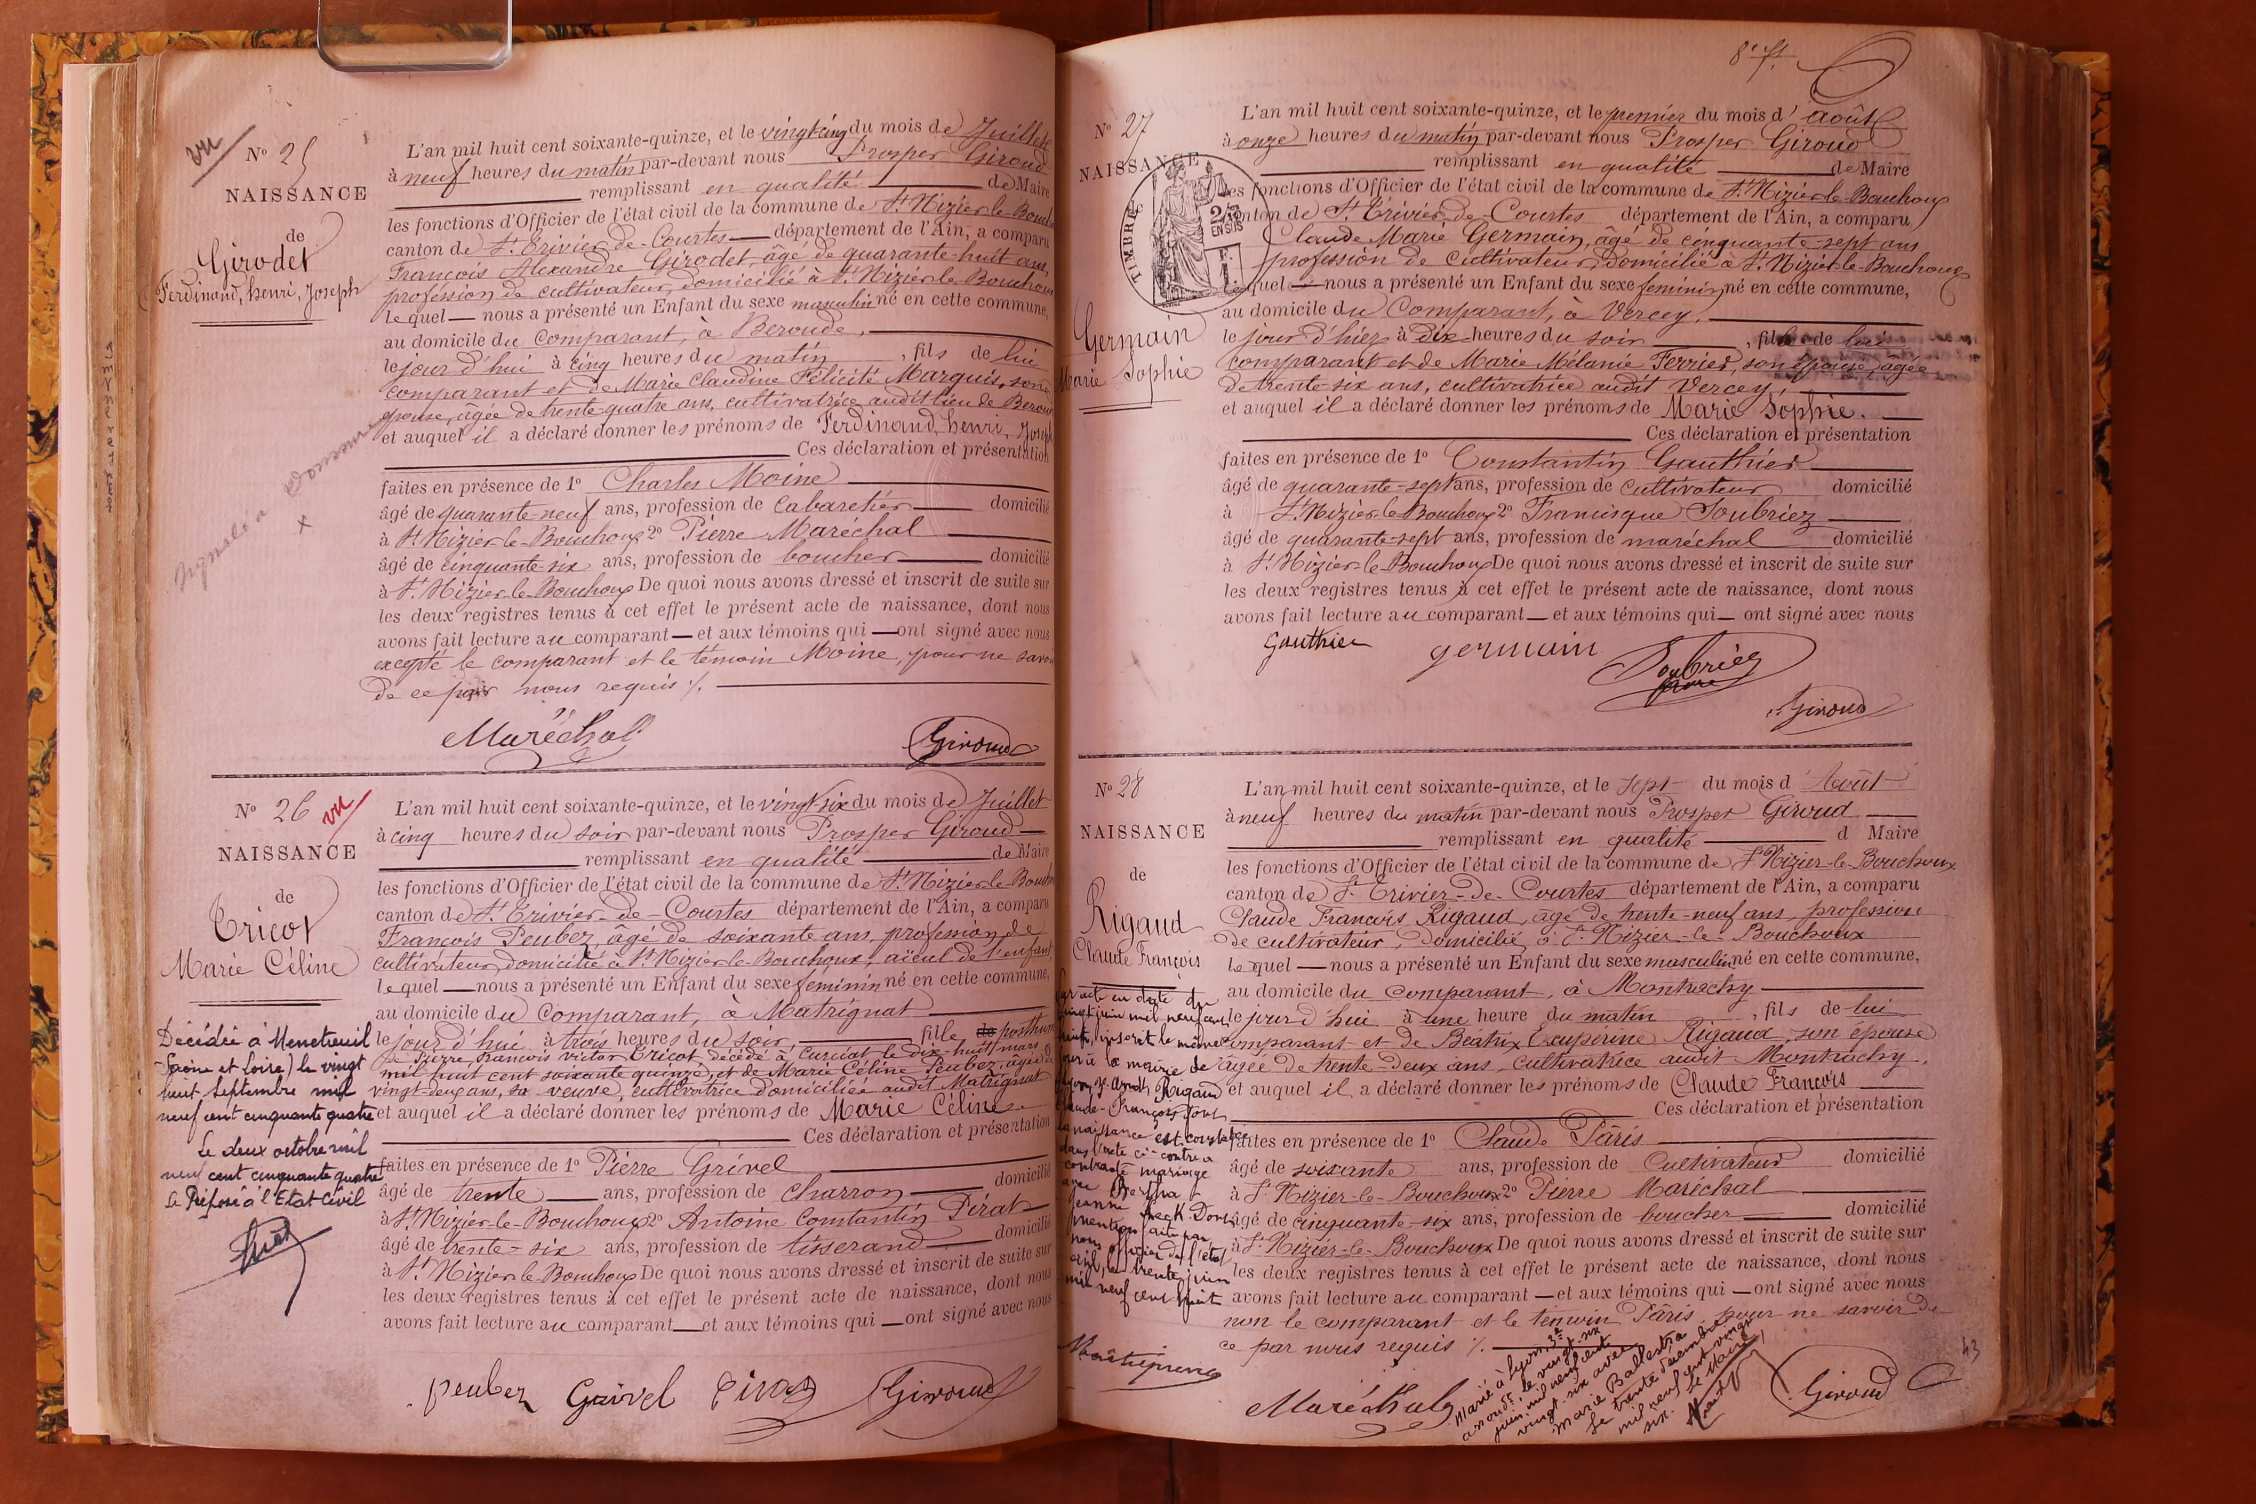 vu
N° 25
NAISSANCE
de
Girodet
Ferdinand, henri, Joseph
L'an mil huit cent soixante-quinze, et le vingt-cinq du mois de Juillet
à neuf heures du matin par-devant nous Prosper Giroud
remplissant en qualité de Maire
les fonctions d'Officier de l'état civil de la commune de St Nizier-le-Bouch
canton de St Trivier-de-Courtes département de l'Ain, a comparu
François Alexandre Girodet, âgé de quarante-huit ans,
profession de cultivateur, domicilié à St Nizier-le-Bouchoux
lequel nous a présenté un Enfant du sexe masculin né en cette commune,
au domicile du Comparant, à Beroude,
le jour d'hui à cinq heures du matin, fils de lui
comparant et de Marie Claudine Félicité Marquis, son
épouse, agée de trente-quatre ans, cultivatrice audit lieu de Beroud
et auquel il a déclaré donner les prénoms de Ferdinand, henri, Joseph
Ces déclaration et présentation
faites en présence de 1° Charles Moine
âgé de quarante-neuf ans, profession de Cabaretier domicilié
à St Nizier-le-Bouchoux 2° Pierre Maréchal
âgé de cinquante-six ans, profession de boucher domicilié
à St Nizier-le-Bouchoux De quoi nous avons dressé et inscrit de suite sur
les deux registres tenus à cet effet le présent acte de naissance, dont nous
avons fait lecture au comparant et aux témoins qui ont signé avec nous
excepté le comparant et le témoin Moine, pour ne savoir
de ce par nous requis ./.
Maréchal
Giroud
N° 26
vu
NAISSANCE
de
Tricot
Marie Céline
Décédée à Menetreuil
(Saône et Loire) le vingt
huit Septembre mil
neuf cent cinquante quatre
Le deux octobre mil
neuf cent cinquante quatre
Le Préposé à l'Etat-Civil
L'an mil huit cent soixante-quinze, et le vingt-six du mois de Juillet
à cinq heures du soir par-devant nous Prosper Giroud
remplissant en qualité de Maire
les fonctions d'Officier de l'état civil de la commune de St Nizier-le-Bouch
canton de St Trivier-de-Courtes département de l'Ain, a comparu
François Peubez, âgé de soixante ans, profession de
cultivateur, domicilié à St Nizier-le-Bouchoux, aïeul de l'enfant,
lequel nous a présenté un Enfant du sexe feminin né en cette commune,
au domicile du Comparant, à Matrignat
le jour d'hui à trois heures du soir, fille posthume
de Pierre François Victor Tricot décédé à Curciat le dix-huit mars
mil huit cent soixante quinze, et de Marie Céline Peubez, âgée de
vingt-deux ans, sa veuve, cultivatrice domiciliée audit Matrignat
et auquel il a déclaré donner les prénoms de Marie Céline.
Ces déclaration et présentation
faites en présence de 1° Pierre Grivel
âgé de trente ans, profession de charron domicilié
à St Nizier-le-Bouchoux 2° Antoine Constantin Pirat
âgé de trente-six ans, profession de tisserand domicilié
à St Nizier-le-Bouchoux De quoi nous avons dressé et inscrit de suite sur
les deux registres tenus à cet effet le présent acte de naissance, dont nous
avons fait lecture au comparant et aux témoins qui ont signé avec nous
peubez Grivel Pirat Giroud
8e ft.
N° 27
NAISSANCE
TIMBRE
2/10
EN SUS
Germain
Marie Sophie
L'an mil huit cent soixante-quinze, et le premier du mois d'août
à onze heures du matin par-devant nous Prosper Giroud
remplissant en qualité de Maire
les fonctions d'Officier de l'état civil de la commune de St Nizier-le-Bouchoux
canton de St Trivier-de-Courtes département de l'Ain, a comparu
Claude Marie Germain, âgé de cinquante-sept ans
profession de cultivateur, domicilié à St Nizier-le-Bouchoux
lequel nous a présenté un Enfant du sexe feminin né en cette commune,
au domicile du Comparant, à Vercey,
le jour d'hier à dix heures du soir, fille de lui
comparant et de Marie Mélanie Ferrier, son épouse, âgée
de trente-six ans, cultivatrice audit Vercey,
et auquel il a déclaré donner les prénoms de Marie Sophie.
Ces déclaration et présentation
faites en présence de 1° Constantin Gauthier
âgé de quarante-sept ans, profession de cultivateur domicilié
à St Nizier-le-Bouchoux 2° Francisque Soubriez
âgé de quarante-sept ans, profession de maréchal domicilié
à St Nizier-le-Bouchoux De quoi nous avons dressé et inscrit de suite sur
les deux registres tenus à cet effet le présent acte de naissance, dont nous
avons fait lecture au comparant et aux témoins qui ont signé avec nous
Gauthier germain Soubriez
Giroud
N° 28
NAISSANCE
de
Rigaud
Claude François
par acte en date du
vingt juin mil neuf cent
huit, inscrit le même
jour à la mairie de
Lyon, Rigaud
Claude-François dont
la naissance est constatée
dans l'acte ci-contre a
contracté mariage
avec Bertha
Jeanne
mention faite par
nous officier de l'état
civil, le trente juin
mil neuf cent huit
L'an mil huit cent soixante-quinze, et le sept du mois d'Août
à neuf heures du matin par-devant nous Prosper Giroud
remplissant en qualité d Maire
les fonctions d'Officier de l'état civil de la commune de St Nizier-le-Bouchoux
canton de St Trivier-de-Courtes département de l'Ain, a comparu
Claude François Rigaud, âgé de trente-neuf ans, profession
de cultivateur, domicilié à St Nizier-le-Bouchoux
lequel nous a présenté un Enfant du sexe masculin né en cette commune,
au domicile du comparant, à Montrachy
le jour d'hui à une heure du matin, fils de lui
comparant et de Béatrix Exupérine Rigaud, son épouse
âgée de trente-deux ans, cultivatrice audit Montrachy.
et auquel il a déclaré donner les prénoms de Claude François
Ces déclaration et présentation
faites en présence de 1° Claude Pâris
âgé de soixante ans, profession de Cultivateur domicilié
à St Nizier-le-Bouchoux 2° Pierre Maréchal
âgé de cinquante-six ans, profession de boucher domicilié
à St Nizier-le-Bouchoux De quoi nous avons dressé et inscrit de suite sur
les deux registres tenus à cet effet le présent acte de naissance, dont nous
avons fait lecture au comparant et aux témoins qui ont signé avec nous
non le comparant et le témoin Pâris pour ne savoir de
ce par nous requis ./.
Maréchal
Marié à Lyon 3e
arrondt, le vingt-six
juin mil neuf cent
vingt-six avec
Marie Ballestra
Le trente décembre
mil neuf cent vingt
six. Le Maire,
Giroud
43